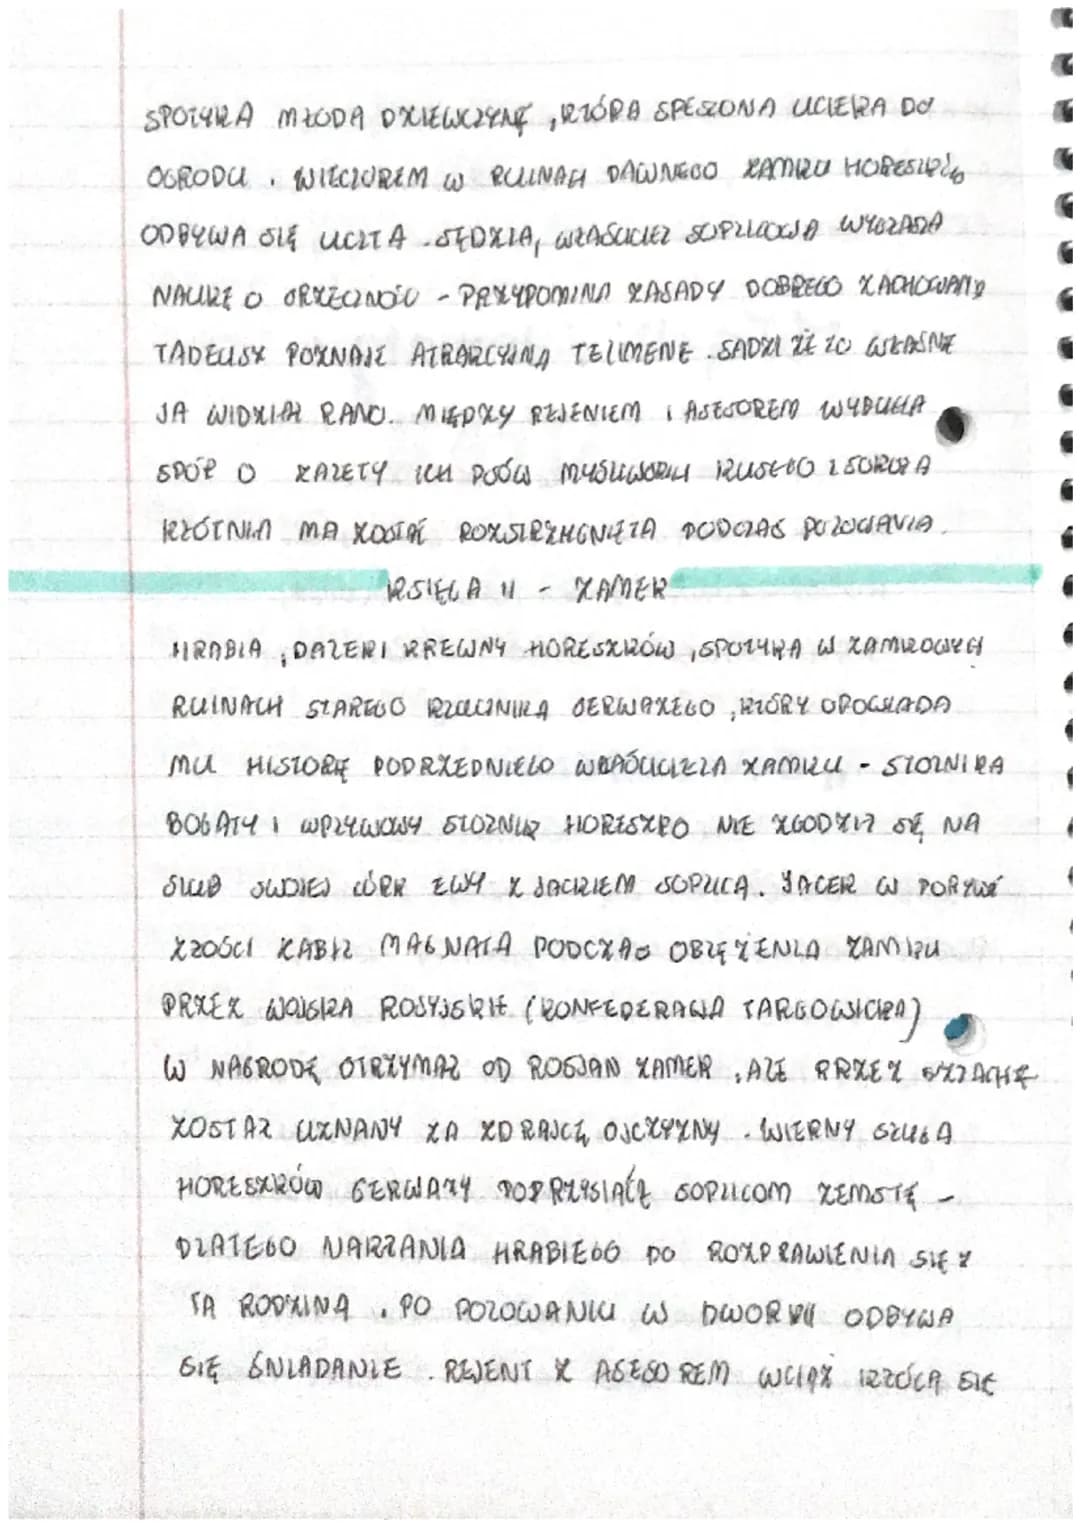 SPOTYKA MŁODĄ DZIEWCZYNĘ, KTÓRA SPESZONA UCIEKA DO
OGRODU. WIECZOREM W RUINACH DAWNEGO ZAMKU HORESZKÓW
ODBYWA SIĘ UCZTA. SĘDZIA, WŁAŚCICIEL SOPLICOWA WYGŁASZA
NAUKĘ O GRZECZNOŚCI - PRZYPOMINA ZASADY DOBREGO ZACHOWANIA
TADEUSZ POZNAJE ATRAKCYJNĄ TELIMENE. SĄDZI ŻE TO WŁAŚNIE
JĄ WIDZIAŁ RANO. MIĘDZY REJENTEM I ASESOREM WYBUCHA
SPÓR O ZALETY ICH PSÓW MYŚLIWSKICH KUSEGO I SOKOŁA
KŁÓTNIA MA ZOSTAĆ ROZSTRZYGNIĘTA PODCZAS POLOWANIA.
KSIĘGA II - ZAMEK
HRABIA, DALEKI KREWNY HORESZKÓW, SPOTYKA W ZAMKOWYCH
RUINACH STAREGO KLUCZNIKA GERWAZEGO, KTÓRY OPOWIADA
MU HISTORĘ POPRZEDNIEGO WŁAŚCICIELA ZAMKU - STOLNIKA
BOGATY I WPŁYWOWY STOLNIK HORESZKO NIE ZGODZIŁ SIĘ NA
ŚLUB SWOJEJ CÓRKI EWY Z JACKIEM SOPLICĄ. JACEK W PORYWIE
ZŁOŚCI ZABIŁ MAGNATA PODCZAS OBLĘŻENIA ZAMKU
PRZEZ WOJSKA ROSYJSKIE (KONFEDERACJA TARGOWICKA)
W NAGRODĘ OTRZYMAŁ OD ROSJAN ZAMEK, ALE PRZEZ SZLACHTĘ
ZOSTAŁ UZNANY ZA ZDRAJCĘ OJCZYZNY. WIERNY SŁUGA
HORESZKÓW GERWAZY POPRZYSIĄGŁ SOPLICOM ZEMSTĘ -
DLATEGO NAKŁANIA HRABIEGO DO ROZPRAWIENIA SIĘ Z
TĄ RODZINĄ. PO POLOWANIU W DWORKU ODBYWA
SIĘ ŚNIADANIE. REJENT Z ASESOREM WCIĄŻ KŁÓCĄ SIĘ